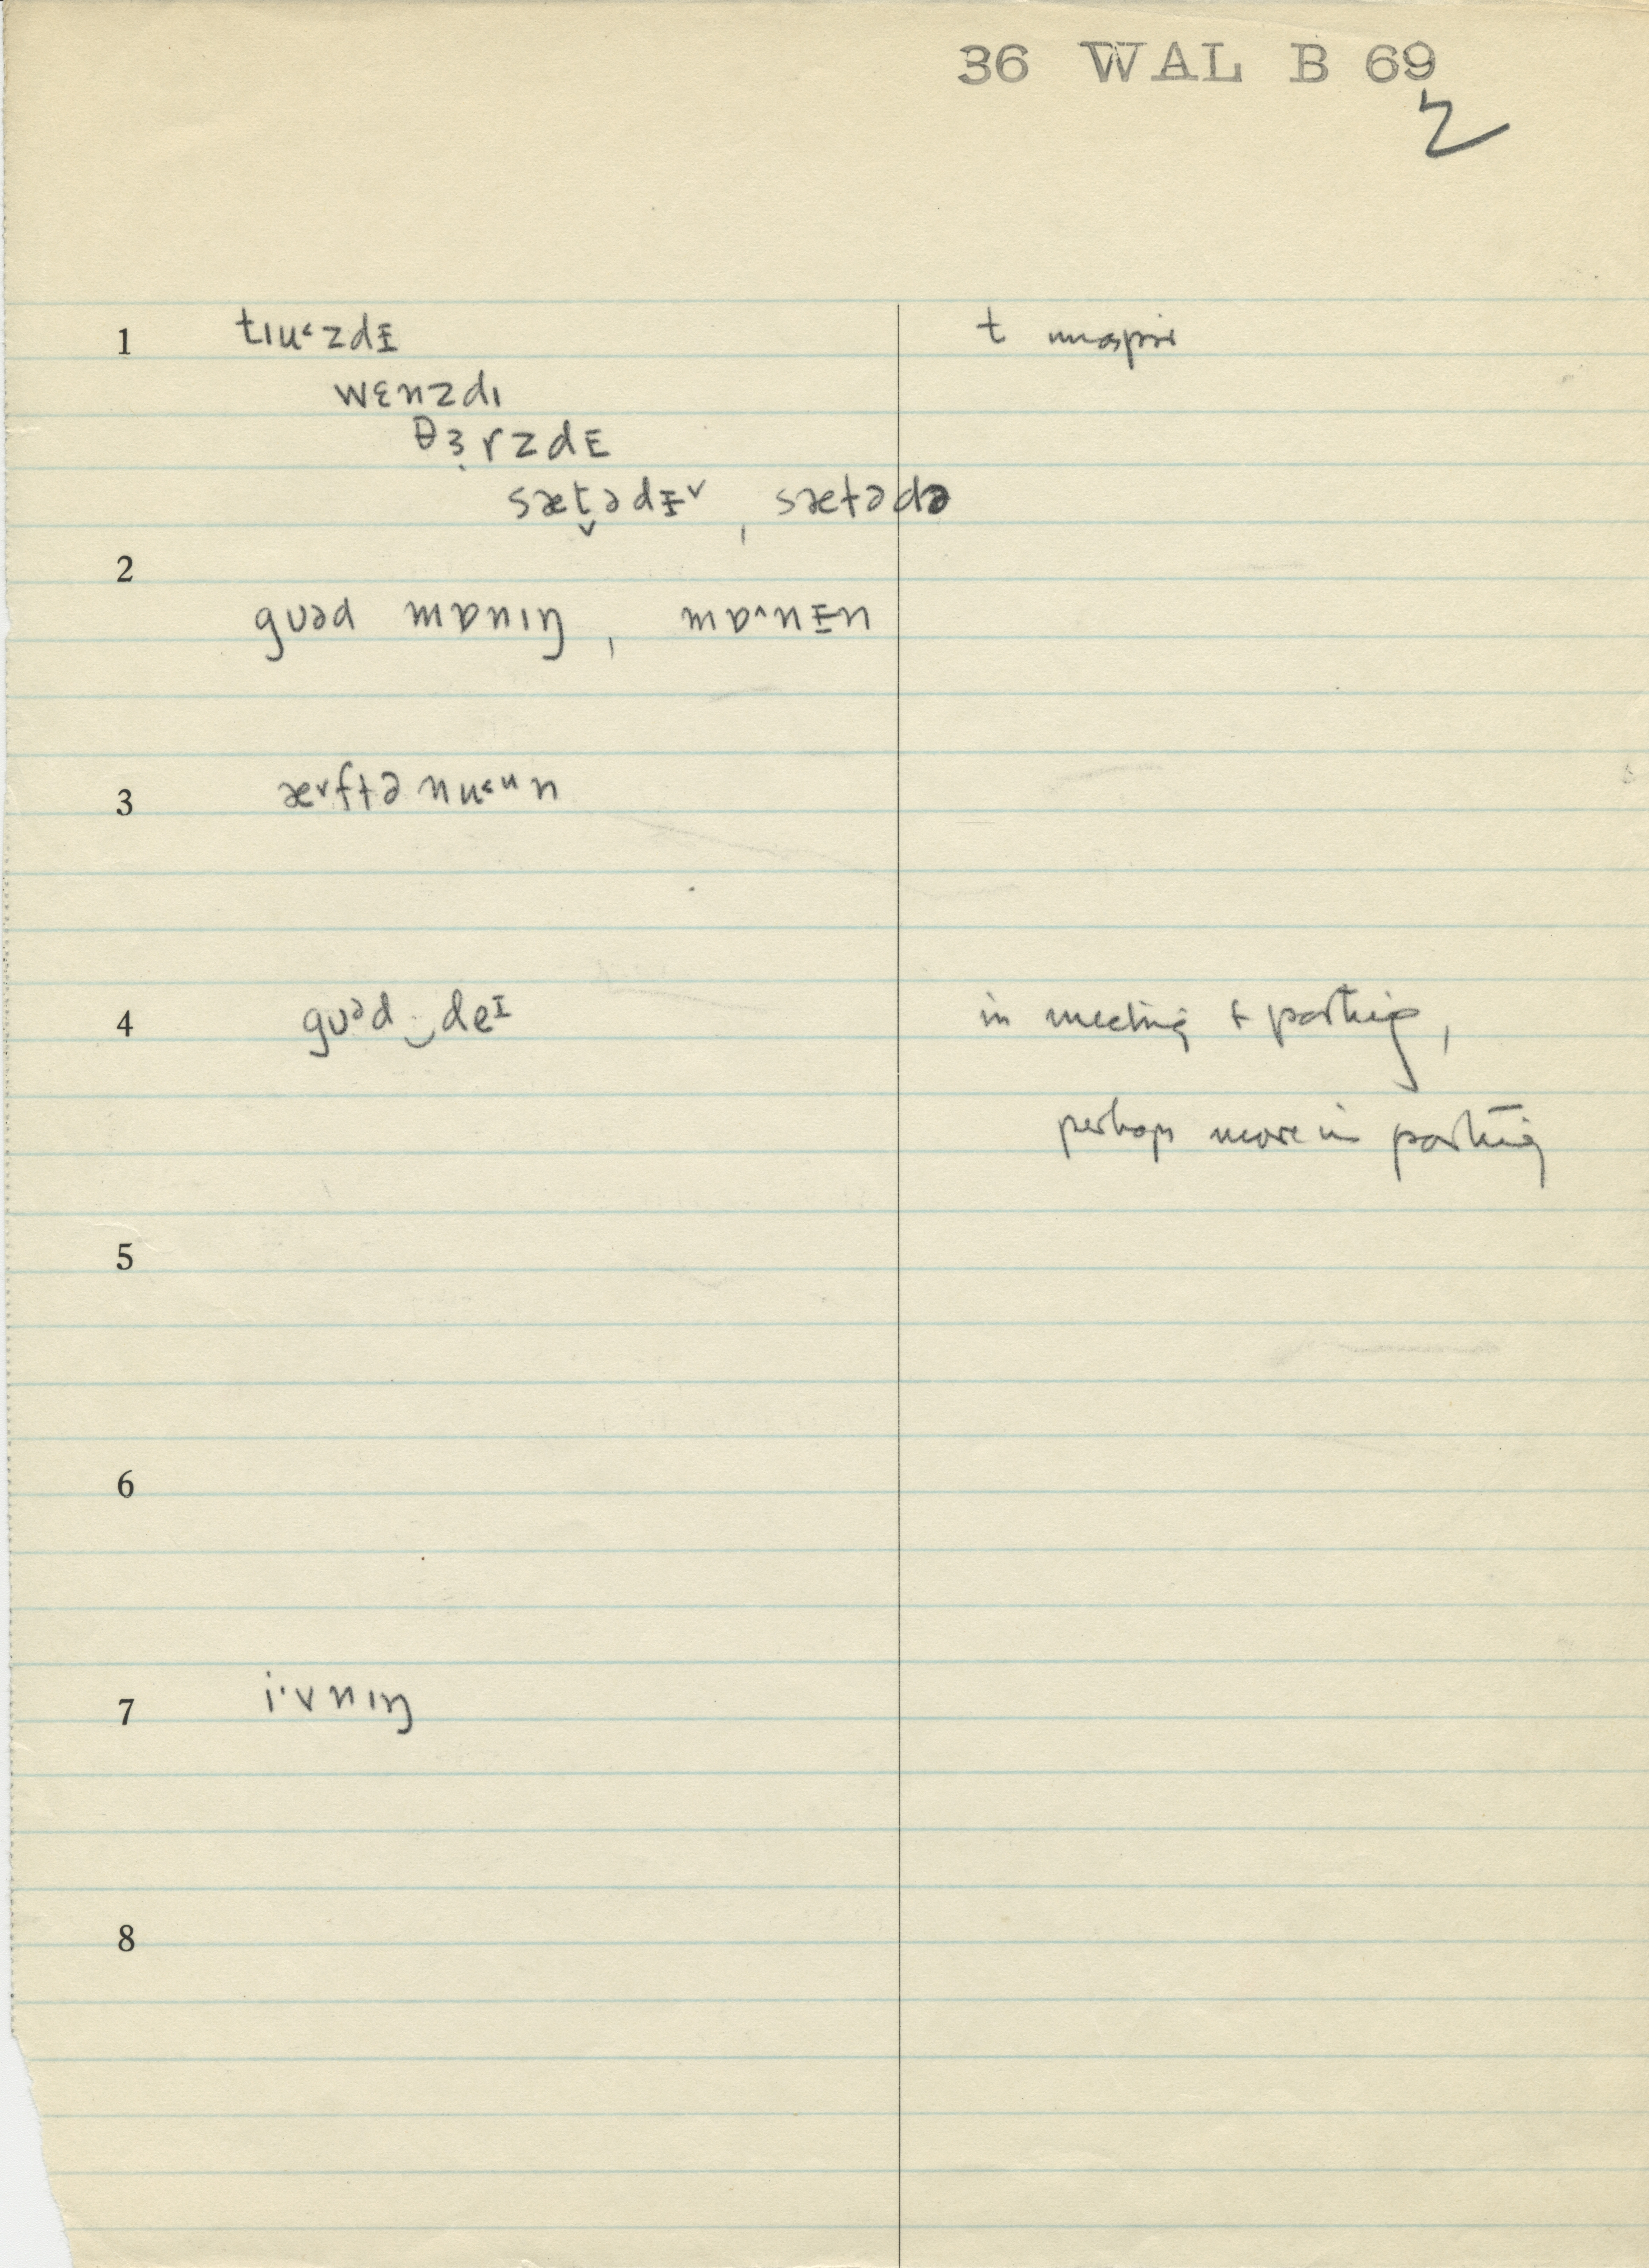 36 WAL B 69
2
1 tɪu˂zdᵻ t unaspir
wɛnzdɪ
θɜ̣rzdE
sæt̬ədᵻ˅ , sætədə
2
gʊəd mɒnɪŋ , mɒ^nᵻn
3 æ˅ftə nu˂ᵘn
4 gʊᵊd‿deᴵ in meeting + parting,
perhaps more in parting
5
6
7 i·vnɪŋ
8